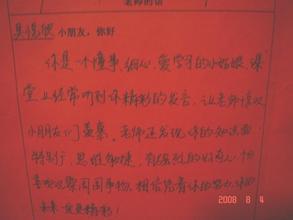 老师的话
小朋友，你好
你是一个懂事、细心、爱学习的小姑娘，课
堂上经常听到你精彩的发言，让老师喜欢
小朋友们羡慕。老师还发现你的知识面
特别广，思维敏捷，
观察周围事物，相信凭着你的努力，你的
未来会更精彩！
2008 8 4